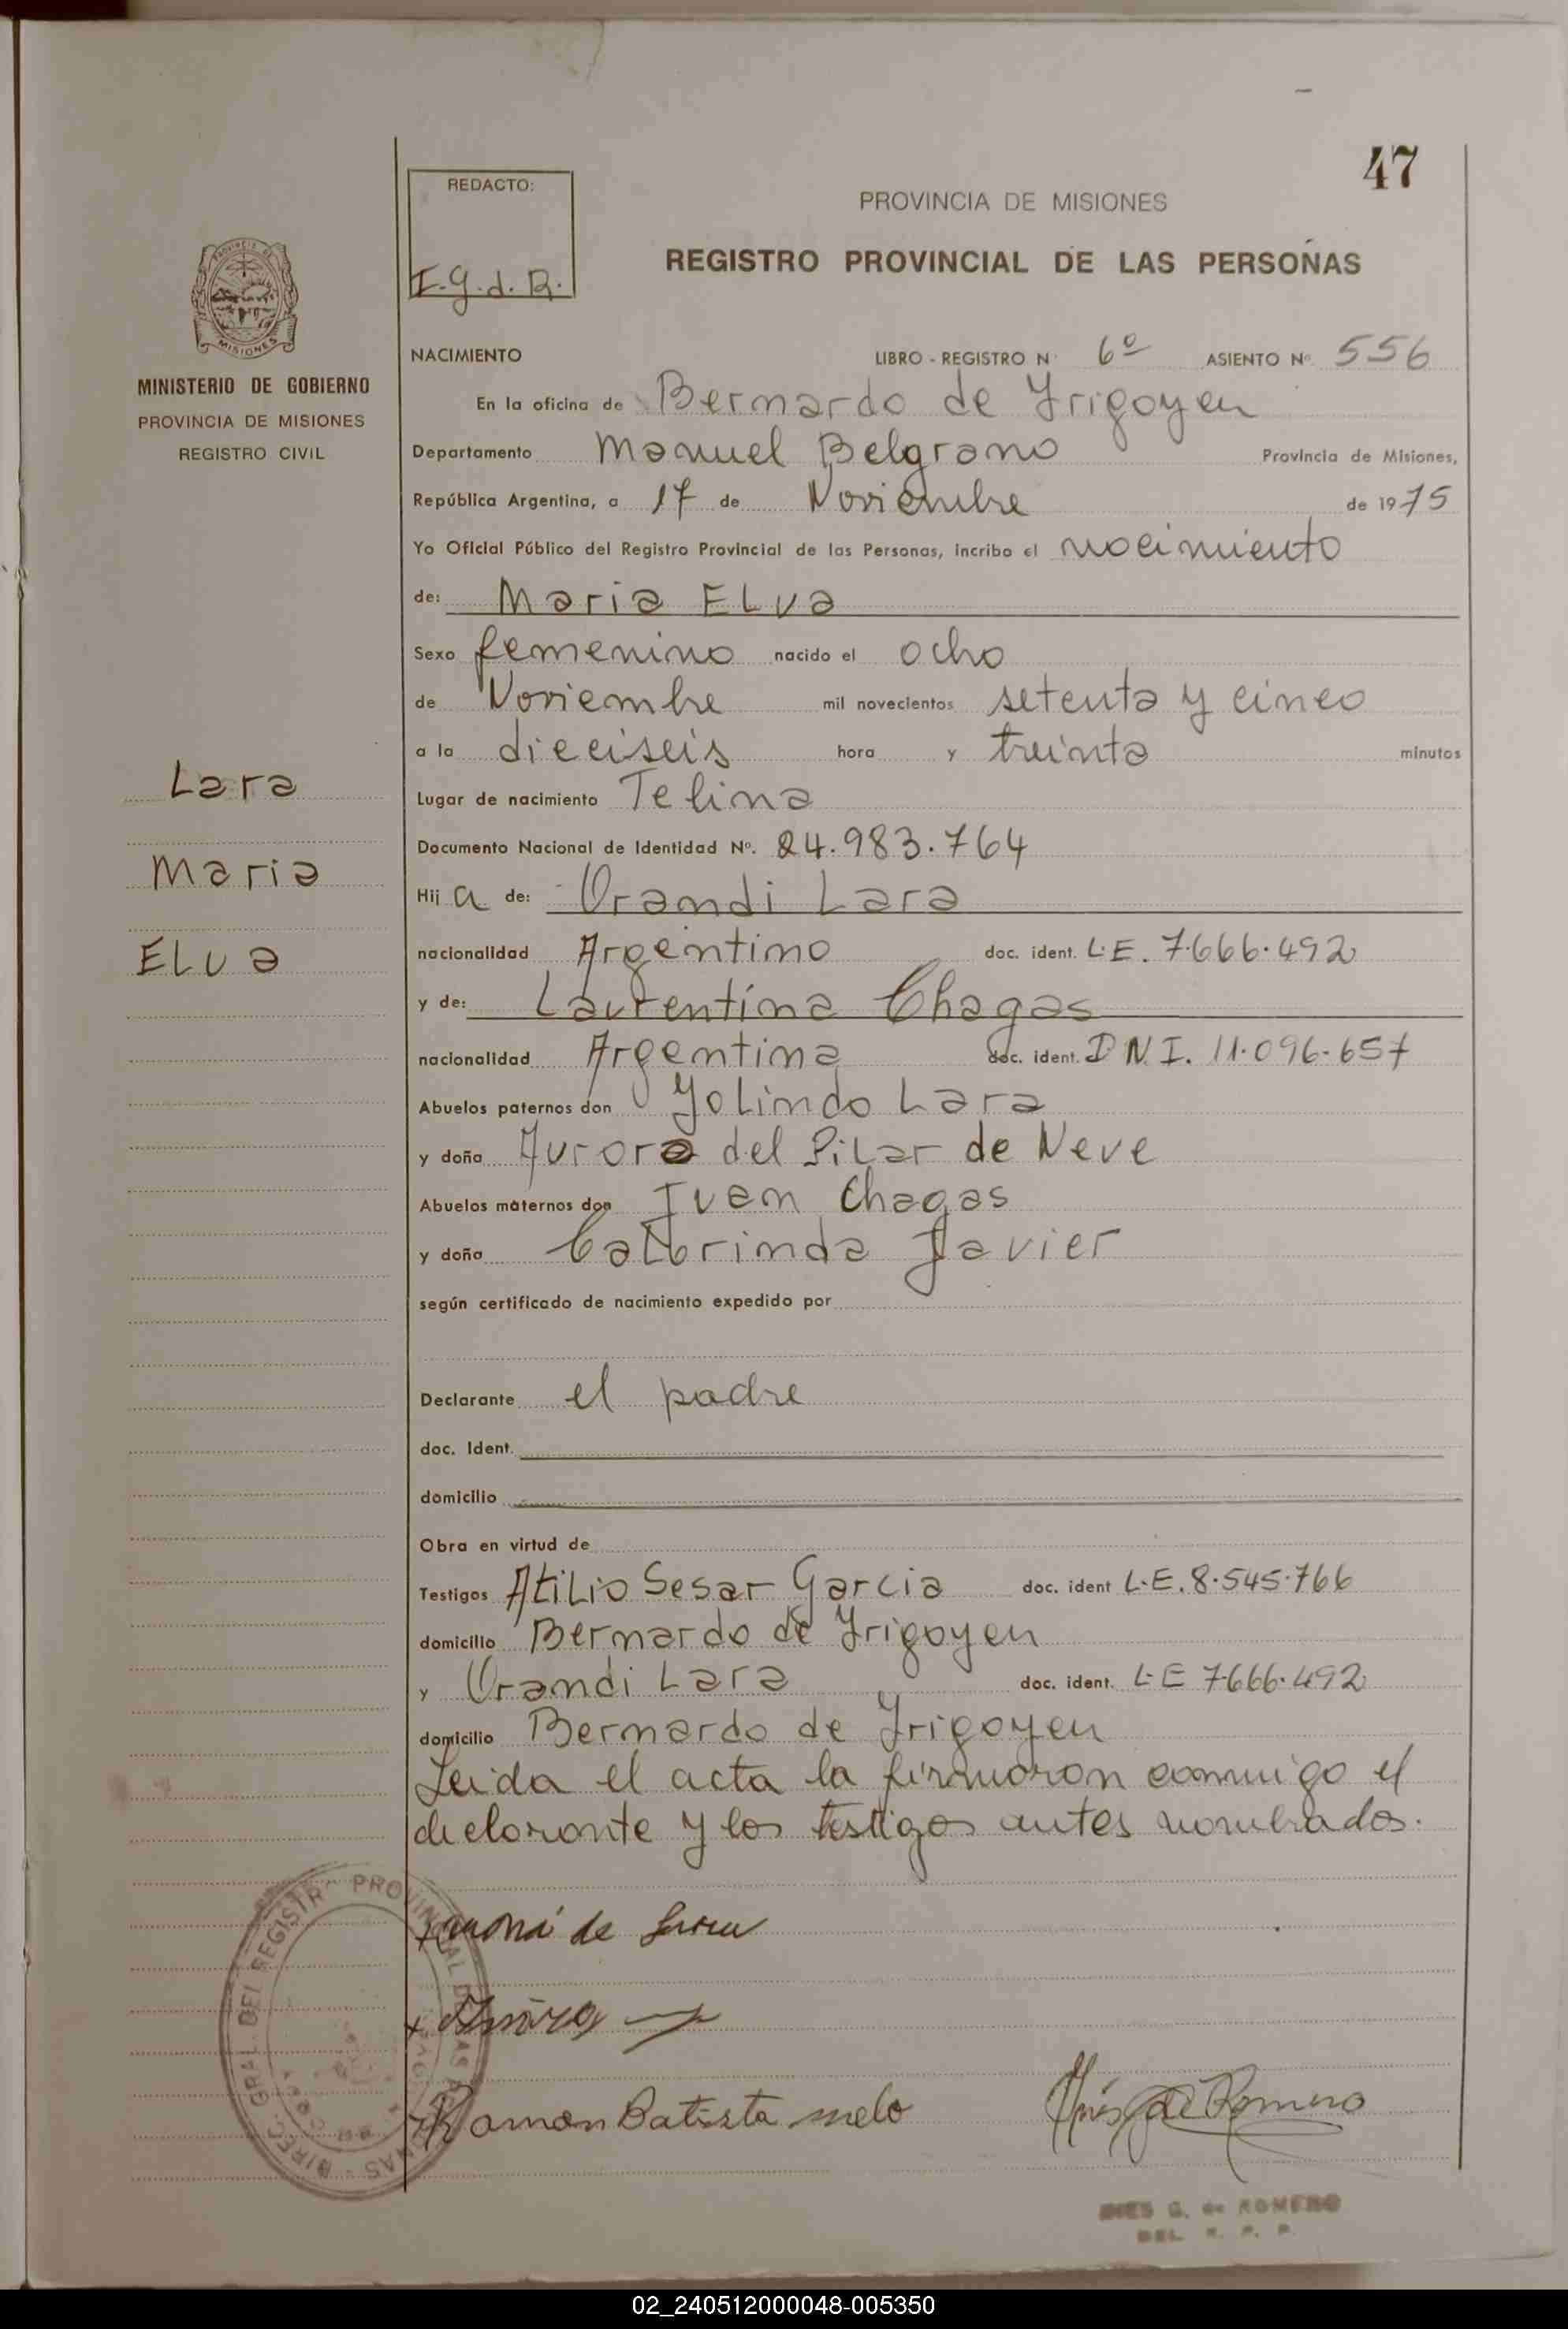 47
REDACTO:
I.G.d.R.
PROVINCIA DE MISIONES
REGISTRO PROVINCIAL DE LAS PERSONAS
PROVINCIA DE
MISIONES
MINISTERIO DE GOBIERNO
PROVINCIA DE MISIONES
REGISTRO CIVIL
NACIMIENTO LIBRO - REGISTRO N° 6º ASIENTO Nº 556
En la oficina de Bernardo de Yrigoyen
Departamento Manuel Belgrano Provincia de Misiones,
República Argentina, a 17 de Noviembre de 1975
Yo Oficial Público del Registro Provincial de las Personas, incribo el nacimiento
de: Maria ELva
Sexo femenino nacido el ocho
de Noviembre mil novecientos setenta y cinco
a la dieciseis hora y treinta minutos
Lugar de nacimiento Telina
Documento Nacional de Identidad Nº. 24.983.764
Hij a de: Orandi Lara
nacionalidad Argentino doc. ident. L.E. 7.666.492
y de: Laurentina Chagas
nacionalidad Argentina doc. ident. D.N.I. 11.096.657
Abuelos paternos don Yolindo Lara
y doña Aurora del Pilar de Neve
Abuelos maternos don Ivan Chagas
y doña Calorinda Javier
según certificado de nacimiento expedido por
Declarante el padre
doc. Ident.
domicilio
Obra en virtud de
Testigos Atilio Sesar Garcia doc. ident L.E. 8.545.766
domicilio Bernardo de Yrigoyen
y Orandi Lara doc. ident. L.E 7.666.492
domicilio Bernardo de Yrigoyen
Leida el acta la firmaron conmigo el
declarante y los testigos antes nombrados.
Lara
Maria
ELva
DIREC. GRAL. DEL REGISTRO PROVINCIAL DE LAS PERSONAS
de
Ramon Batista melo
Inés G de Romero
INES G. de ROMERO
DEL. R. P. P.
02_240512000048-005350